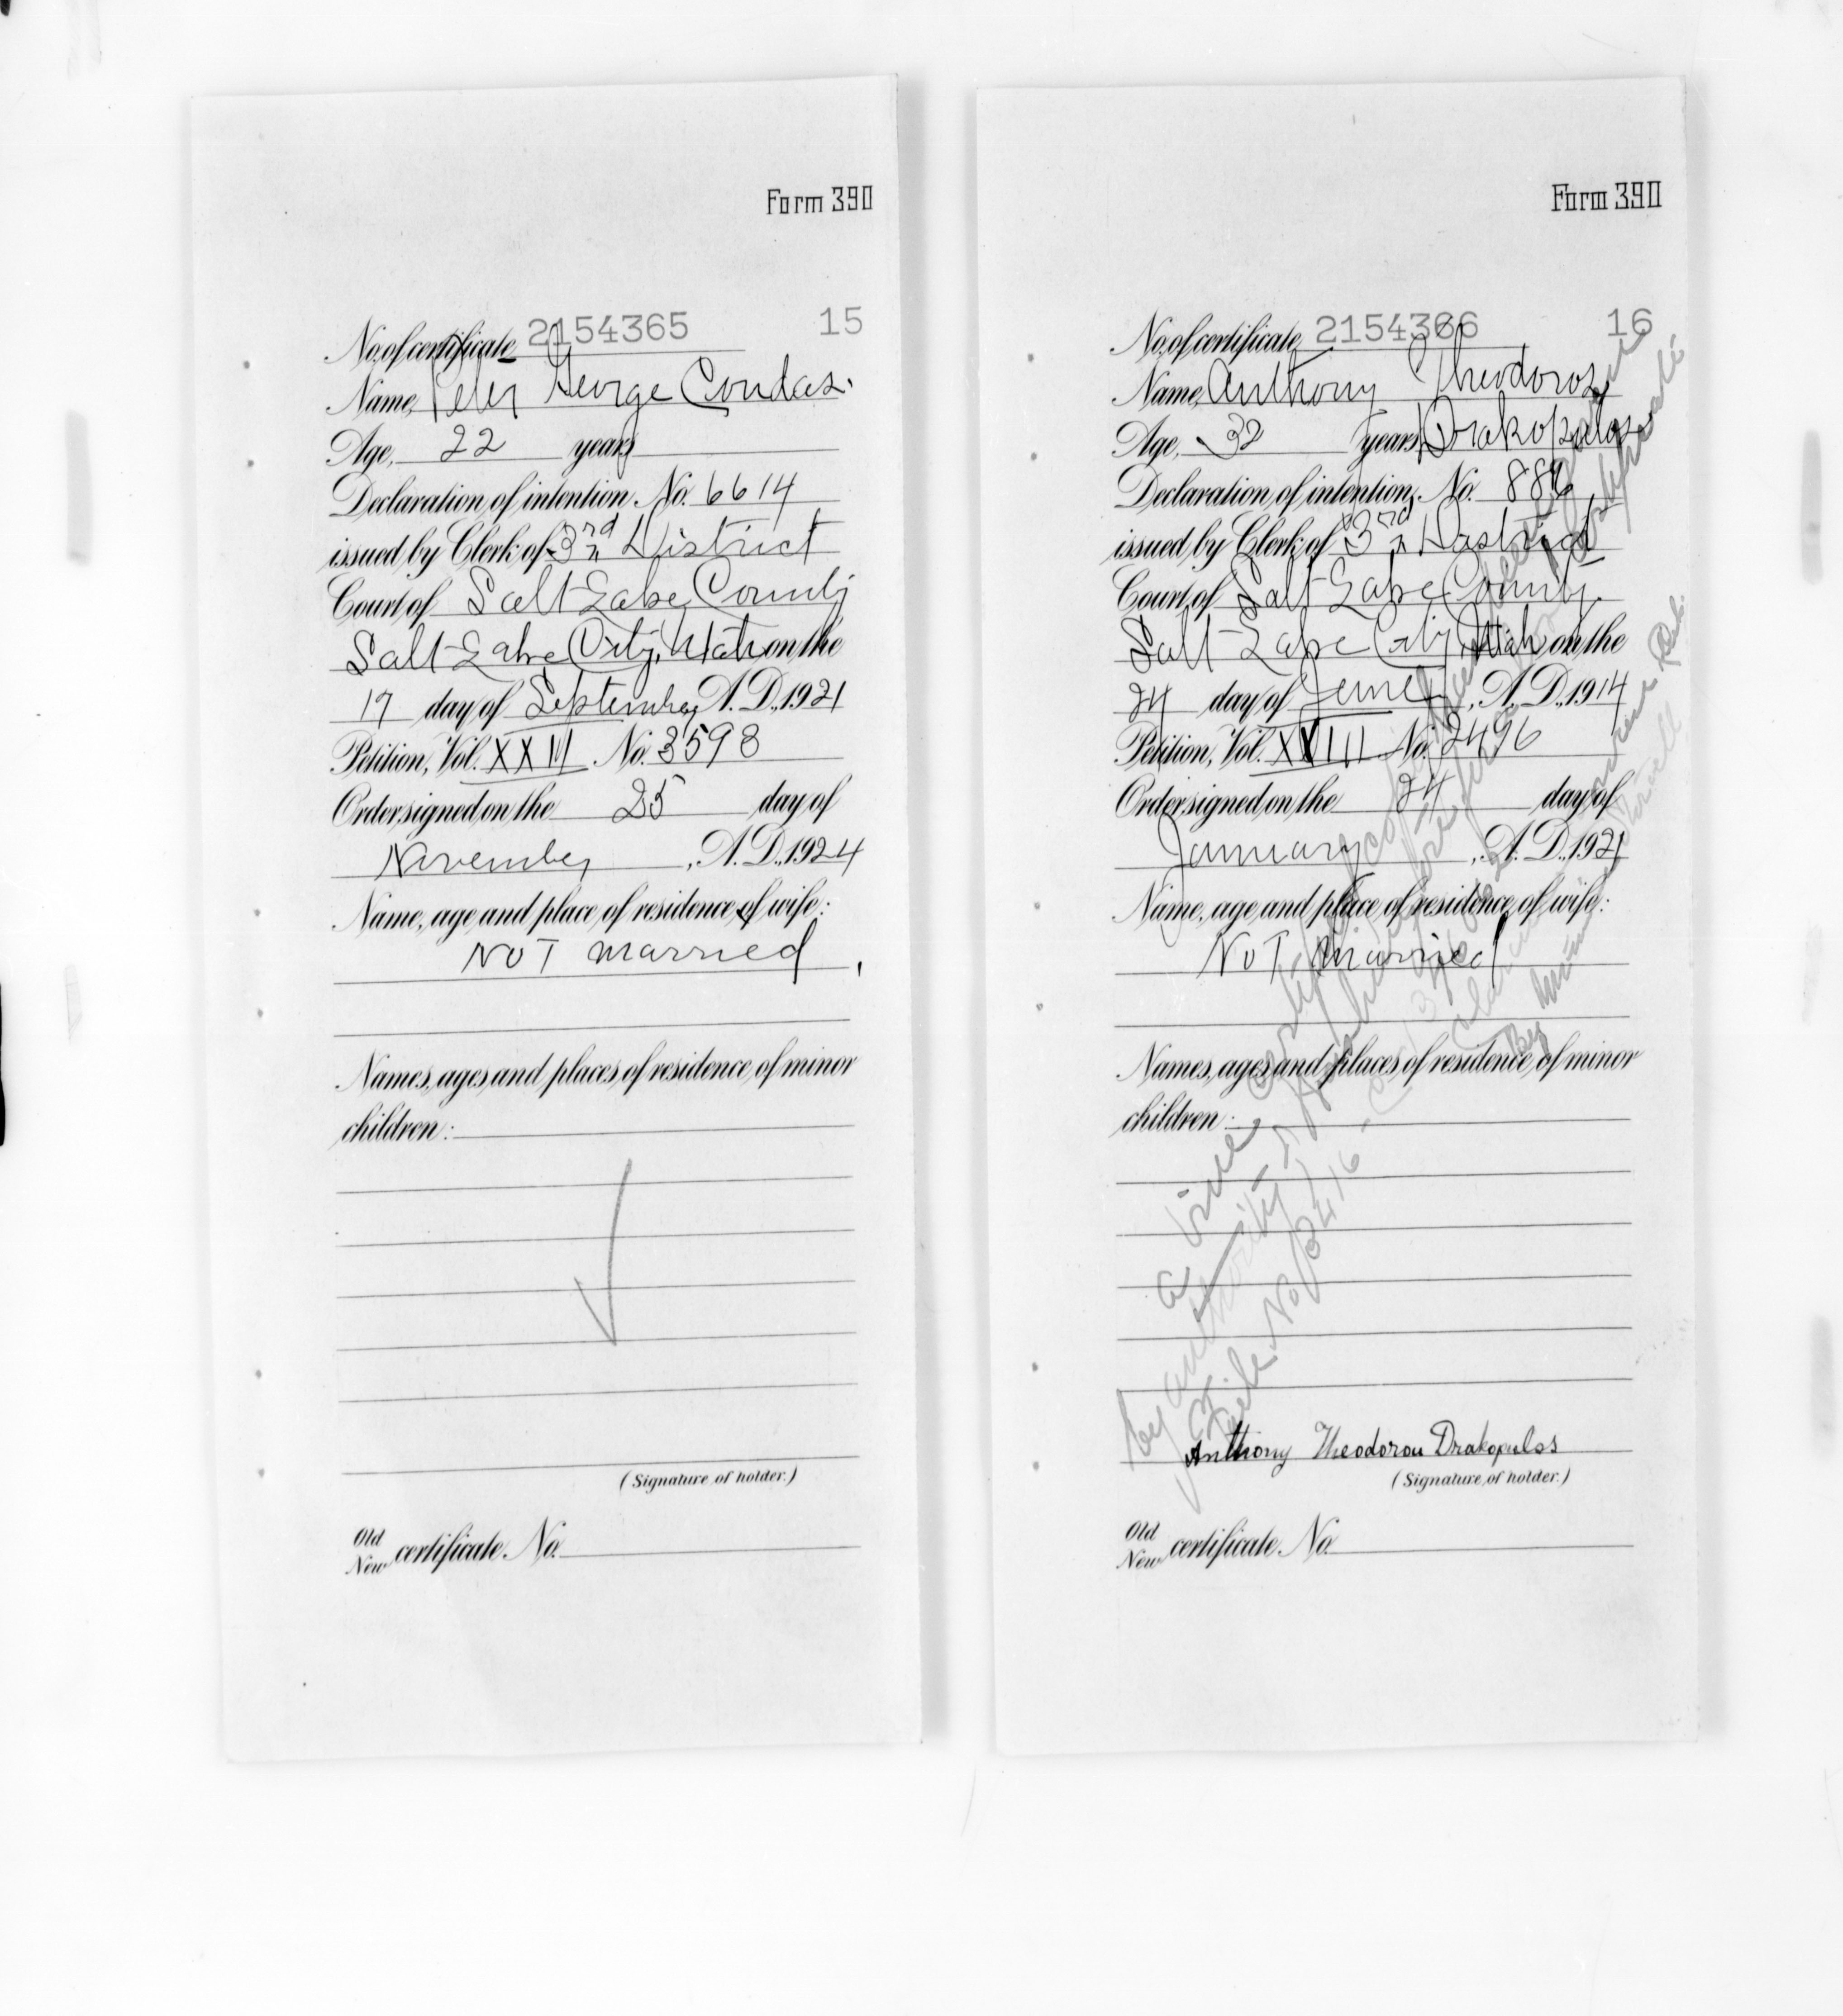 Form 390
No. of certificate 2154365 15
Name, Peter George Condas.
Age, 22 years
Declaration of intention, No. 6614
issued by Clerk of 3rd District
Court of Salt Lake County
Salt Lake City, Utah on the
17 day of September, A.D., 1921
Petition, Vol. XXIII No. 3598
Order signed on the 25 day of
November, A.D., 1924
Name, age and place of residence of wife:
NOT married
Names, ages and places of residence of minor
children:
(Signature of holder.)
Old
New certificate No.
Form 390
No. of certificate 2154366 16
Name, Anthony Theodoros
Age, 32 years Drakopulos
Declaration of intention, No. 886
issued by Clerk of 3rd District
Court of Salt Lake County
Salt Lake City, Utah on the
24 day of June, A.D., 1914
Petition, Vol. XVIII No. 2496
Order signed on the 24 day of
January, A.D., 1921
Name, age and place of residence of wife:
NOT Married
Names, ages and places of residence of minor
children:
Anthony Theodorou Drakopulos
(Signature of holder.)
Old
New certificate No.
a true
by authority
File No.
By